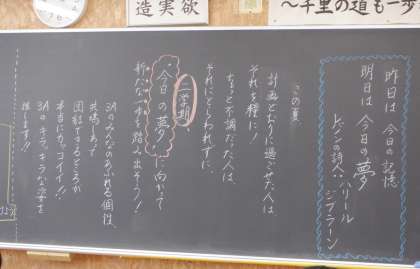 造実欲
〜千里の道も一歩
昨日は 今日の記憶
明日は 今日の夢
レバノンの詩人・ハリール
ジブラーン
この夏
計画どおりに過ごせた人は
それを糧に!
ちょっと不調だった人は、
それにとらわれずに、
二学期
"今日の夢"に向かって
新たな一歩を踏み出そう!
3Aのみんなのあふれる個性、
共鳴しあって
団結できるところが
本当にカッコイイ!!
3Aのキラッキラな学を
推します!!